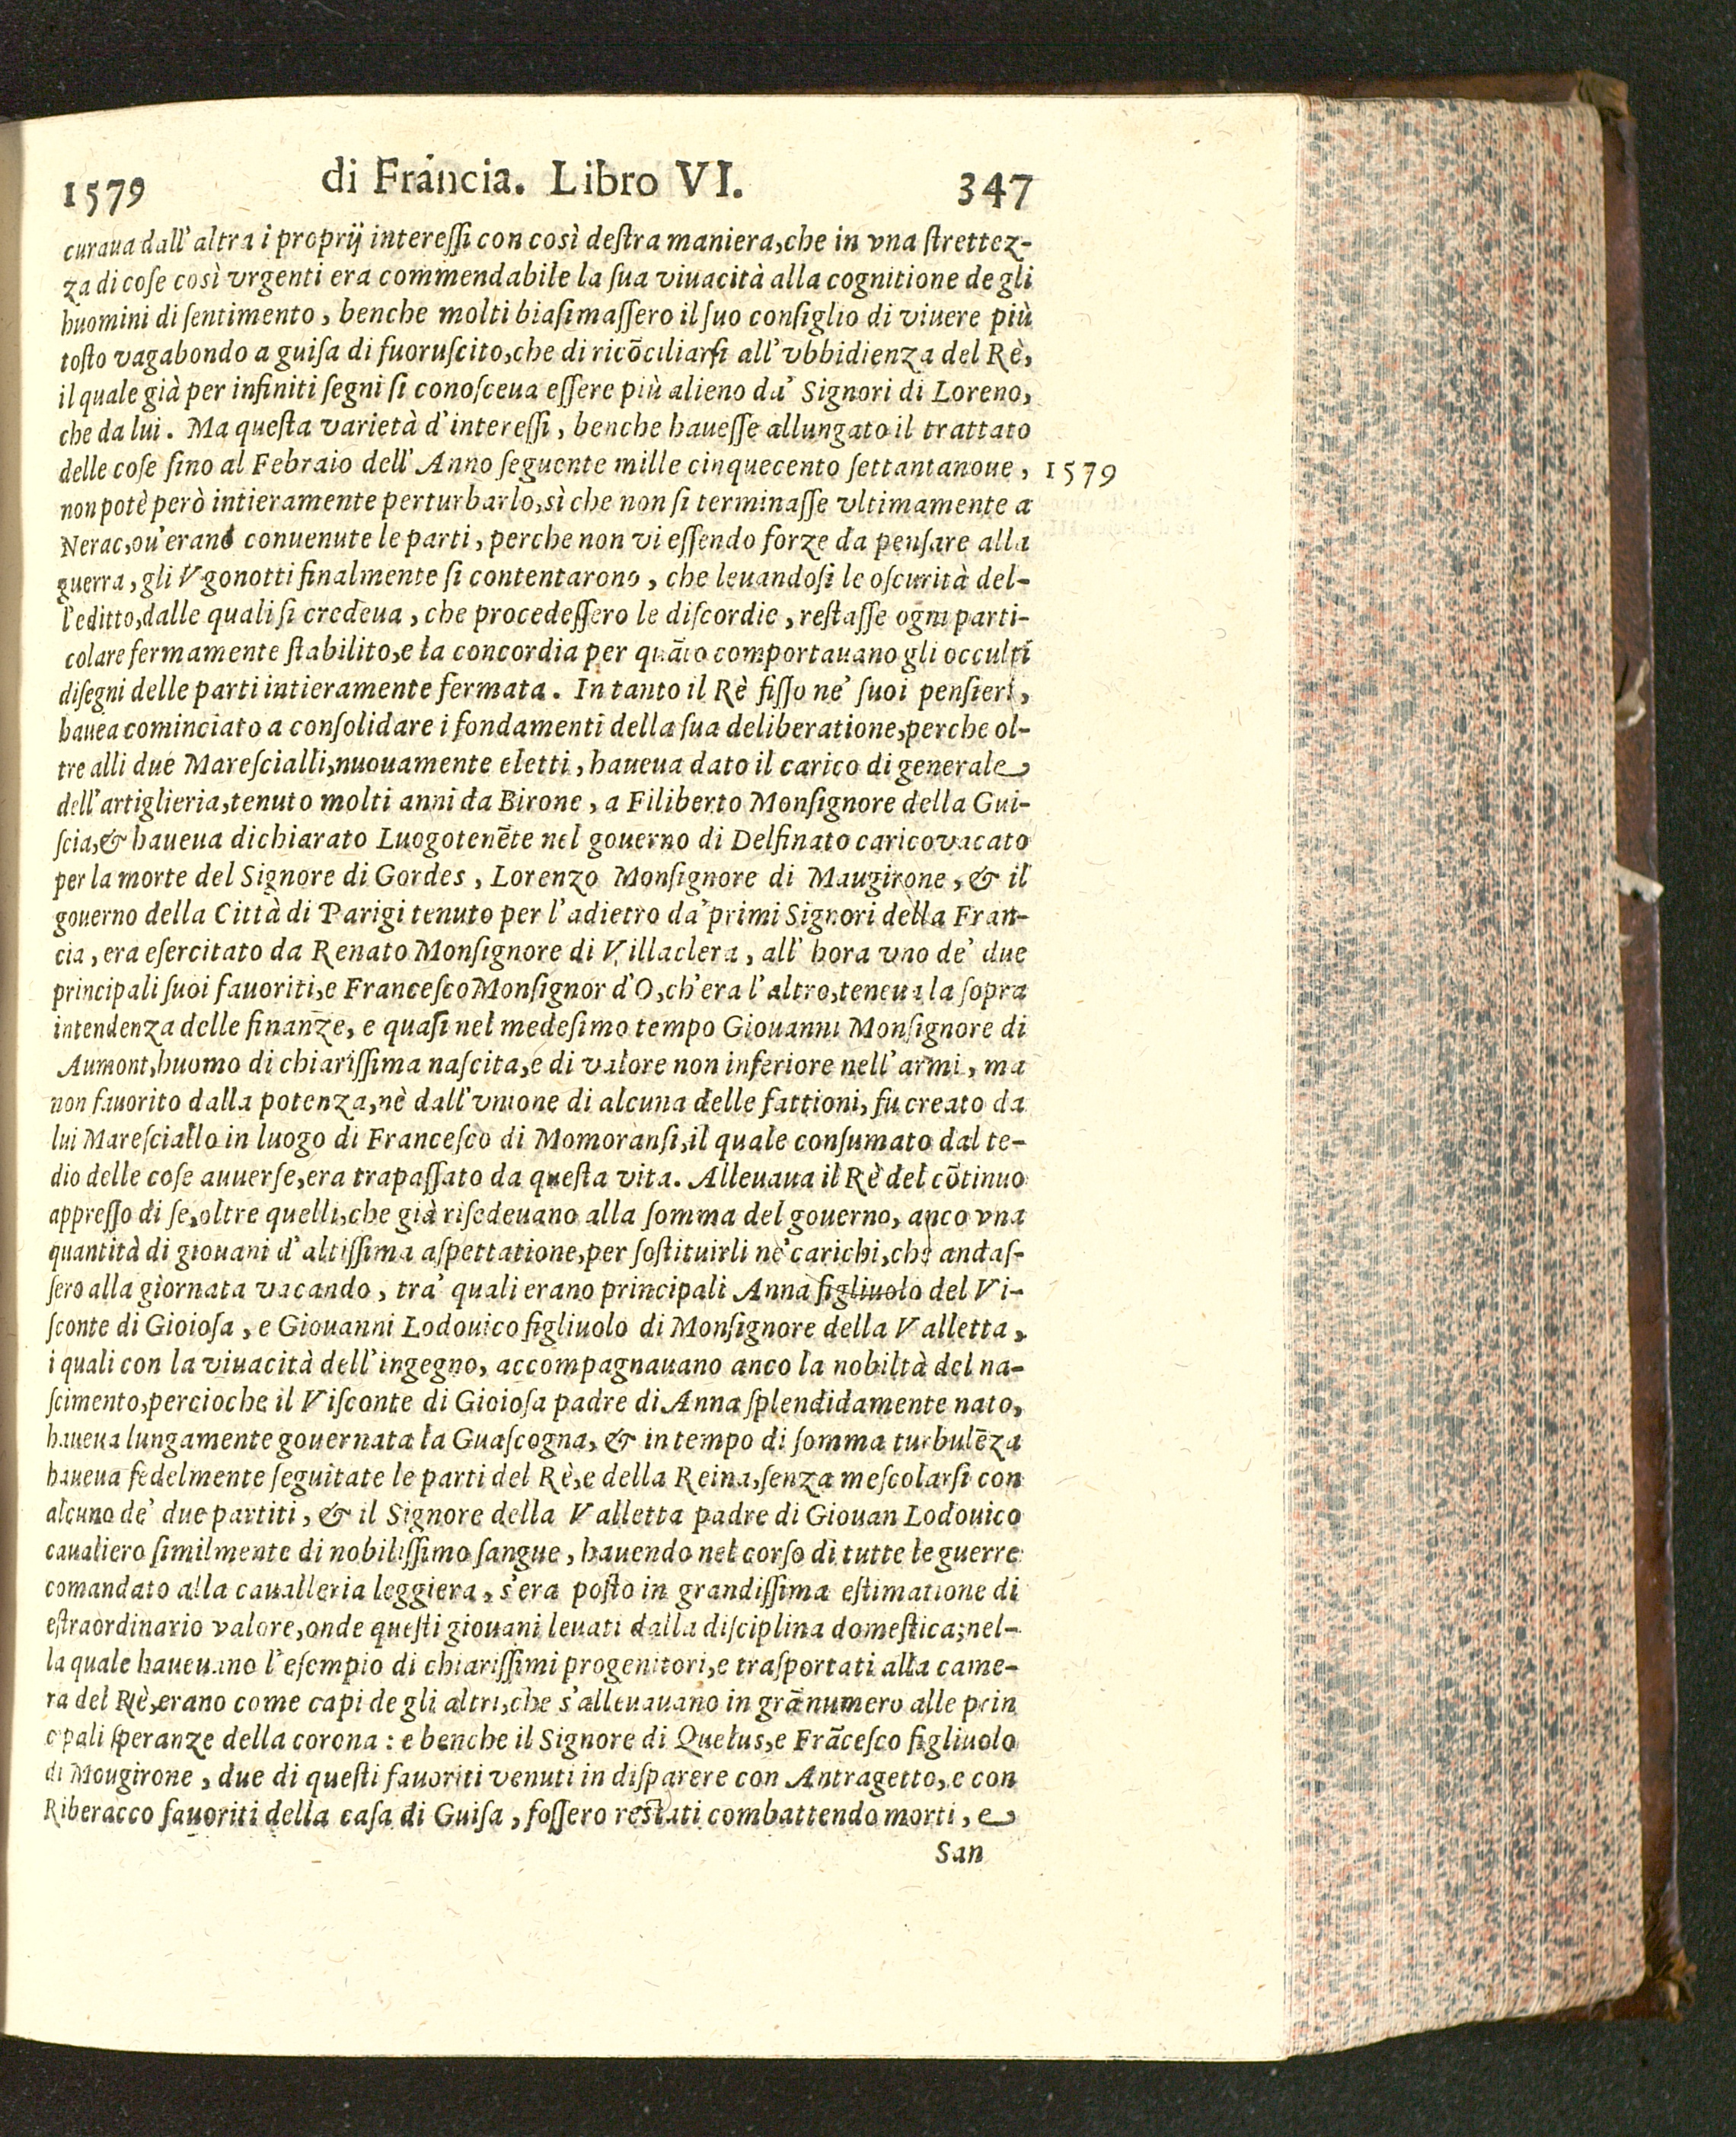 1579 di Francia. Libro VI. 347
curaua dall'altra i proprij interessi con così destra maniera, che in vna strettez-
za di cose così vrgenti era commendabile la sua viuacità alla cognitione de gli
huomini di sentimento, benche molti biasimassero il suo consiglio di viuere più
tosto vagabondo a guisa di fuoruscito, che di ricōciliarsi all'vbbidienza del Rè,
il quale già per infiniti segni si conosceua essere più alieno da' Signori di Loreno,
che da lui. Ma questa varietà d'interessi, benche hauesse allungato il trattato
delle cose sino al Febraio dell'Anno seguente mille cinquecento settantanoue, 1579
non potè però intieramente perturbarlo, sì che non si terminasse vltimamente a
Nerac, ou'erano conuenute le parti, perche non vi essendo forze da pensare alla
guerra, gli Vgonotti finalmente si contentarono, che leuandosi le oscurità del-
l'editto, dalle quali si credeua, che procedessero le discordie, restasse ogni parti-
colare fermamente stabilito, e la concordia per quāto comportauano gli occulti
disegni delle parti intieramente fermata. In tanto il Rè fisso ne' suoi pensieri,
hauea cominciato a consolidare i fondamenti della sua deliberatione, perche ol-
tre alli due Marescialli, nuouamente eletti, haueua dato il carico di generale
dell'artiglieria, tenuto molti anni da Birone, a Filiberto Monsignore della Gui-
scia, & haueua dichiarato Luogotenēte nel gouerno di Delfinato carico vacato
per la morte del Signore di Gordes, Lorenzo Monsignore di Maugirone, & il
gouerno della Città di Parigi tenuto per l'adietro da' primi Signori della Fran-
cia, era esercitato da Renato Monsignore di Villaclera, all'hora vno de' due
principali suoi fauoriti, e Francesco Monsignor d'O, ch'era l'altro, teneua la sopra
intendenza delle finanze, e quasi nel medesimo tempo Giouanni Monsignore di
Aumont, huomo di chiarissima nascita, e di valore non inferiore nell'armi, ma
non fauorito dalla potenza, nè dall'vnione di alcuna delle fattioni, fu creato da
lui Maresciallo in luogo di Francesco di Momoransi, il quale consumato dal te-
dio delle cose auuerse, era trapassato da questa vita. Alleuaua il Rè del cōtinuo
appresso di se, oltre quelli, che già risedeuano alla somma del gouerno, anco vna
quantità di giouani d'altissima aspettatione, per sostituirli ne' carichi, che andas-
sero alla giornata vacando, tra' quali erano principali Anna figliuolo del Vi-
sconte di Gioiosa, e Giouanni Lodouico figliuolo di Monsignore della Valletta,
i quali con la viuacità dell'ingegno, accompagnauano anco la nobiltà del na-
scimento, percioche il Visconte di Gioiosa padre di Anna splendidamente nato,
haueua lungamente gouernata la Guascogna, & in tempo di somma turbulēza
haueua fedelmente seguitate le parti del Rè, e della Reina, senza mescolarsi con
alcuno de' due partiti, & il Signore della Valletta padre di Giouan Lodouico
caualiero similmente di nobilissimo sangue, hauendo nel corso di tutte le guerre
comandato alla caualleria leggiera, s'era posto in grandissima estimatione di
estraordinario valore, onde questi giouani leuati dalla disciplina domestica; nel-
la quale haueuano l'esempio di chiarissimi progenitori, e trasportati alla came-
ra del Rè, erano come capi de gli altri, che s'alleuauano in grā numero alle prin
cipali speranze della corona: e benche il Signore di Quelus, e Frācesco figliuolo
di Mougirone, due di questi fauoriti venuti in disparere con Antragetto, e con
Riberacco fauoriti della casa di Guisa, fossero restati combattendo morti, e
San